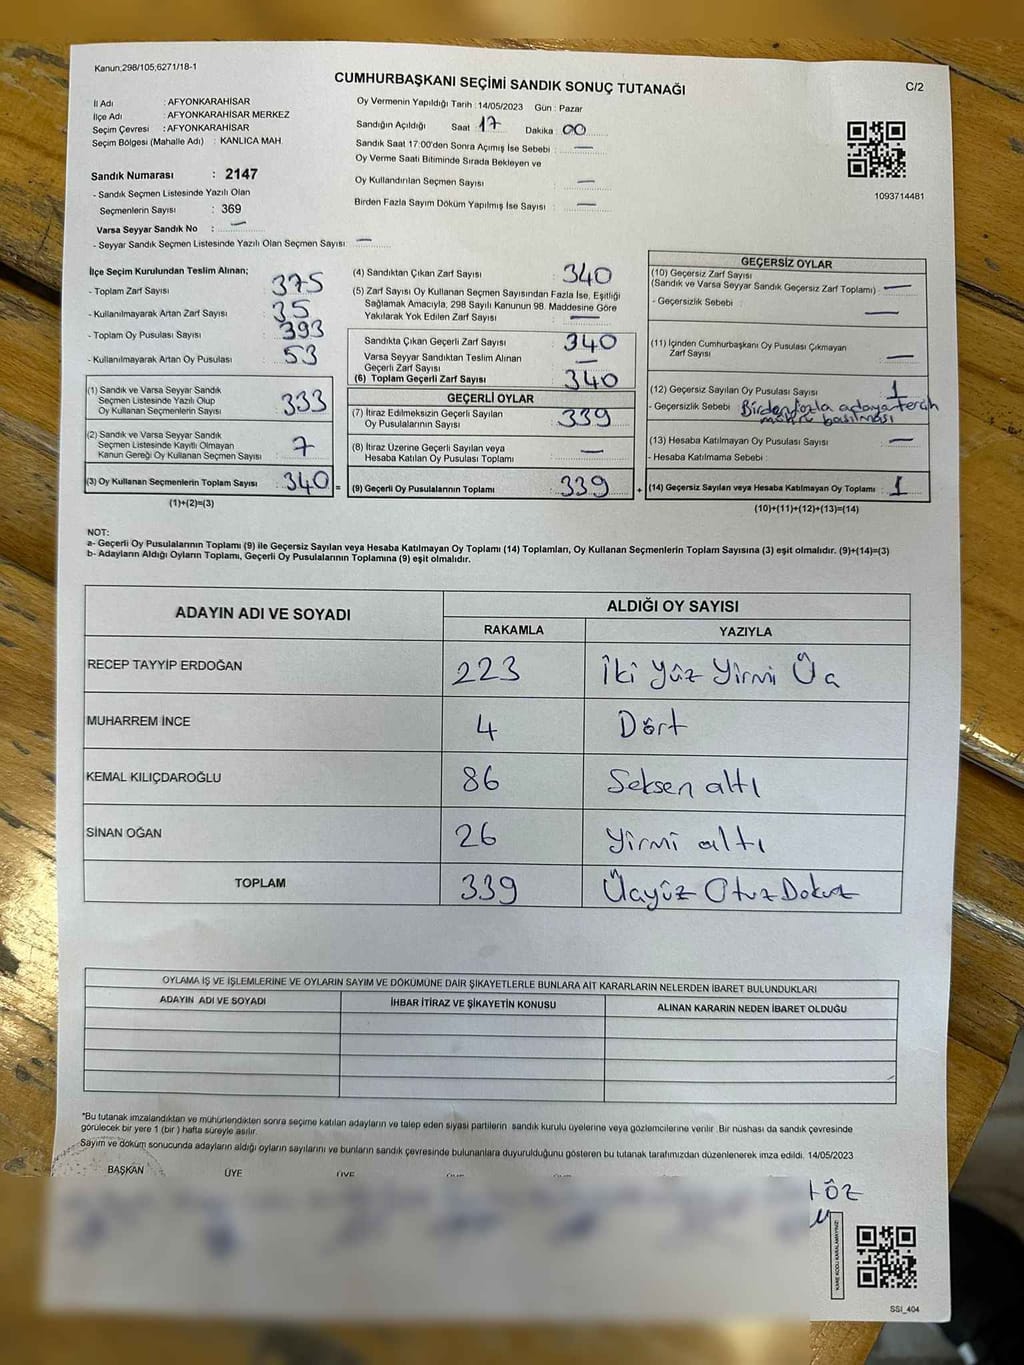 Kanun,298/105,6271/18-1
CUMHURBAŞKANI SEÇİMİ SANDIK SONUÇ TUTANAĞI
C/2
İl Adı : AFYONKARAHİSAR
İlçe Adı : AFYONKARAHİSAR MERKEZ
Seçim Çevresi : AFYONKARAHİSAR
Seçim Bölgesi (Mahalle Adı) : KANLICA MAH.
Oy Vermenin Yapıldığı Tarih : 14/05/2023 Gün : Pazar
Sandığın Açıldığı Saat 17 Dakika 00
Sandık Saat 17:00'den Sonra Açımış İse Sebebi : —
Oy Verme Saati Bitiminde Sırada Bekleyen ve
Oy Kullandırılan Seçmen Sayısı : —
Birden Fazla Sayım Döküm Yapılmış İse Sayısı : —
1093714481
Sandık Numarası : 2147
- Sandık Seçmen Listesinde Yazılı Olan
Seçmenlerin Sayısı : 369
Varsa Seyyar Sandık No : —
- Seyyar Sandık Seçmen Listesinde Yazılı Olan Seçmen Sayısı: —
İlçe Seçim Kurulundan Teslim Alınan;
- Toplam Zarf Sayısı : 375
- Kullanılmayarak Artan Zarf Sayısı : 35
- Toplam Oy Pusulası Sayısı : 393
- Kullanılmayarak Artan Oy Pusulası : 53
(1) Sandık ve Varsa Seyyar Sandık
Seçmen Listesinde Yazılı Olup
Oy Kullanan Seçmenlerin Sayısı : 333
(2) Sandık ve Varsa Seyyar Sandık
Seçmen Listesinde Kayıtlı Olmayan
Kanun Gereği Oy Kullanan Seçmen Sayısı : 7
(3) Oy Kullanan Seçmenlerin Toplam Sayısı : 340 =
(1)+(2)=(3)
(4) Sandıktan Çıkan Zarf Sayısı : 340
(5) Zarf Sayısı Oy Kullanan Seçmen Sayısından Fazla İse, Eşitliği
Sağlamak Amacıyla, 298 Sayılı Kanunun 98. Maddesine Göre
Yakılarak Yok Edilen Zarf Sayısı : —
Sandıkta Çıkan Geçerli Zarf Sayısı : 340
Varsa Seyyar Sandıktan Teslim Alınan
Geçerli Zarf Sayısı : —
(6) Toplam Geçerli Zarf Sayısı : 340
GEÇERLİ OYLAR
(7) İtiraz Edilmeksizin Geçerli Sayılan
Oy Pusulalarının Sayısı : 339
(8) İtiraz Üzerine Geçerli Sayılan veya
Hesaba Katılan Oy Pusulası Toplamı : —
(9) Geçerli Oy Pusulalarının Toplamı : 339 +
GEÇERSİZ OYLAR
(10) Geçersiz Zarf Sayısı
(Sandık ve Varsa Seyyar Sandık Geçersiz Zarf Toplamı) : —
- Geçersizlik Sebebi : —
(11) İçinden Cumhurbaşkanı Oy Pusulası Çıkmayan
Zarf Sayısı : —
(12) Geçersiz Sayılan Oy Pusulası Sayısı : 1
- Geçersizlik Sebebi : Birden fazla adaya tercih
mührü basılması
(13) Hesaba Katılmayan Oy Pusulası Sayısı : —
- Hesaba Katılmama Sebebi :
(14) Geçersiz Sayılan veya Hesaba Katılmayan Oy Toplamı : 1
(10)+(11)+(12)+(13)=(14)
NOT:
a- Geçerli Oy Pusulalarının Toplamı (9) ile Geçersiz Sayılan veya Hesaba Katılmayan Oy Toplamı (14) Toplamları, Oy Kullanan Seçmenlerin Toplam Sayısına (3) eşit olmalıdır. (9)+(14)=(3)
b- Adayların Aldığı Oyların Toplamı, Geçerli Oy Pusulalarının Toplamına (9) eşit olmalıdır.
ADAYIN ADI VE SOYADI
ALDIĞI OY SAYISI
RAKAMLA YAZIYLA
RECEP TAYYİP ERDOĞAN 223 İki Yüz Yirmi Üç
MUHARREM İNCE 4 Dört
KEMAL KILIÇDAROĞLU 86 Seksen altı
SİNAN OĞAN 26 Yirmi altı
TOPLAM 339 Üçyüz Otuz Dokuz
OYLAMA İŞ VE İŞLEMLERİNE VE OYLARIN SAYIM VE DÖKÜMÜNE DAİR ŞİKAYETLERLE BUNLARA AİT KARARLARIN NELERDEN İBARET BULUNDUKLARI
ADAYIN ADI VE SOYADI İHBAR İTİRAZ VE ŞİKAYETİN KONUSU ALINAN KARARIN NEDEN İBARET OLDUĞU
*Bu tutanak imzalandıktan ve mühürlendikten sonra seçime katılan adayların ve talep eden siyasi partilerin sandık kurulu üyelerine veya gözlemcilerine verilir .Bir nüshası da sandık çevresinde
görülecek bir yere 1 (bir ) hafta süreyle asılır.
Sayım ve döküm sonucunda adayların aldığı oyların sayılarını ve bunların sandık çevresinde bulunanlara duyurulduğunu gösteren bu tutanak tarafımızdan düzenlenerek imza edildi. 14/05/2023
BAŞKAN ÜYE ÜYE
KARE KODU KARALAMAYINIZ!
SSI_404